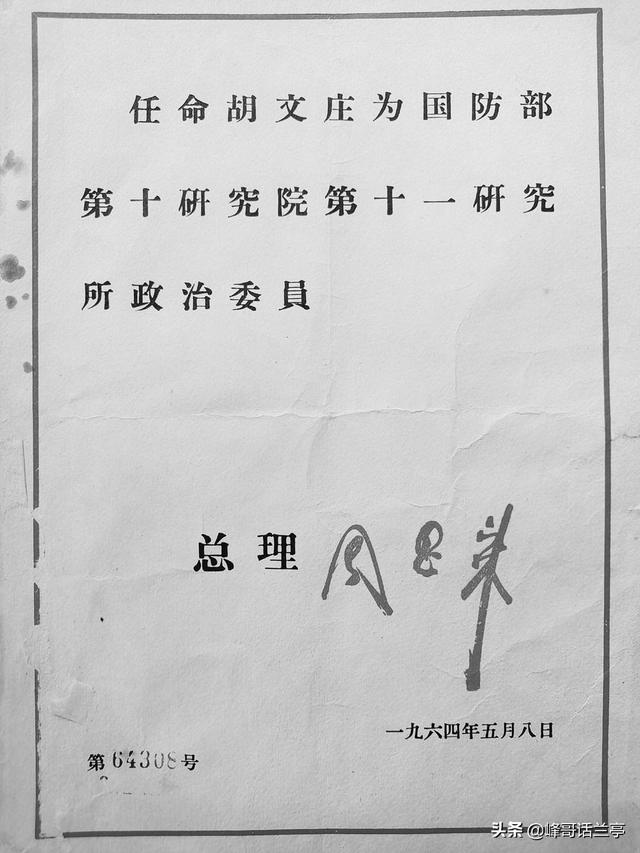 任命胡文庄为国防部
第十研究院第十一研究
所政治委員
总理 周恩来
一九六四年五月八日
第64308号
头条 @峰哥话兰亭